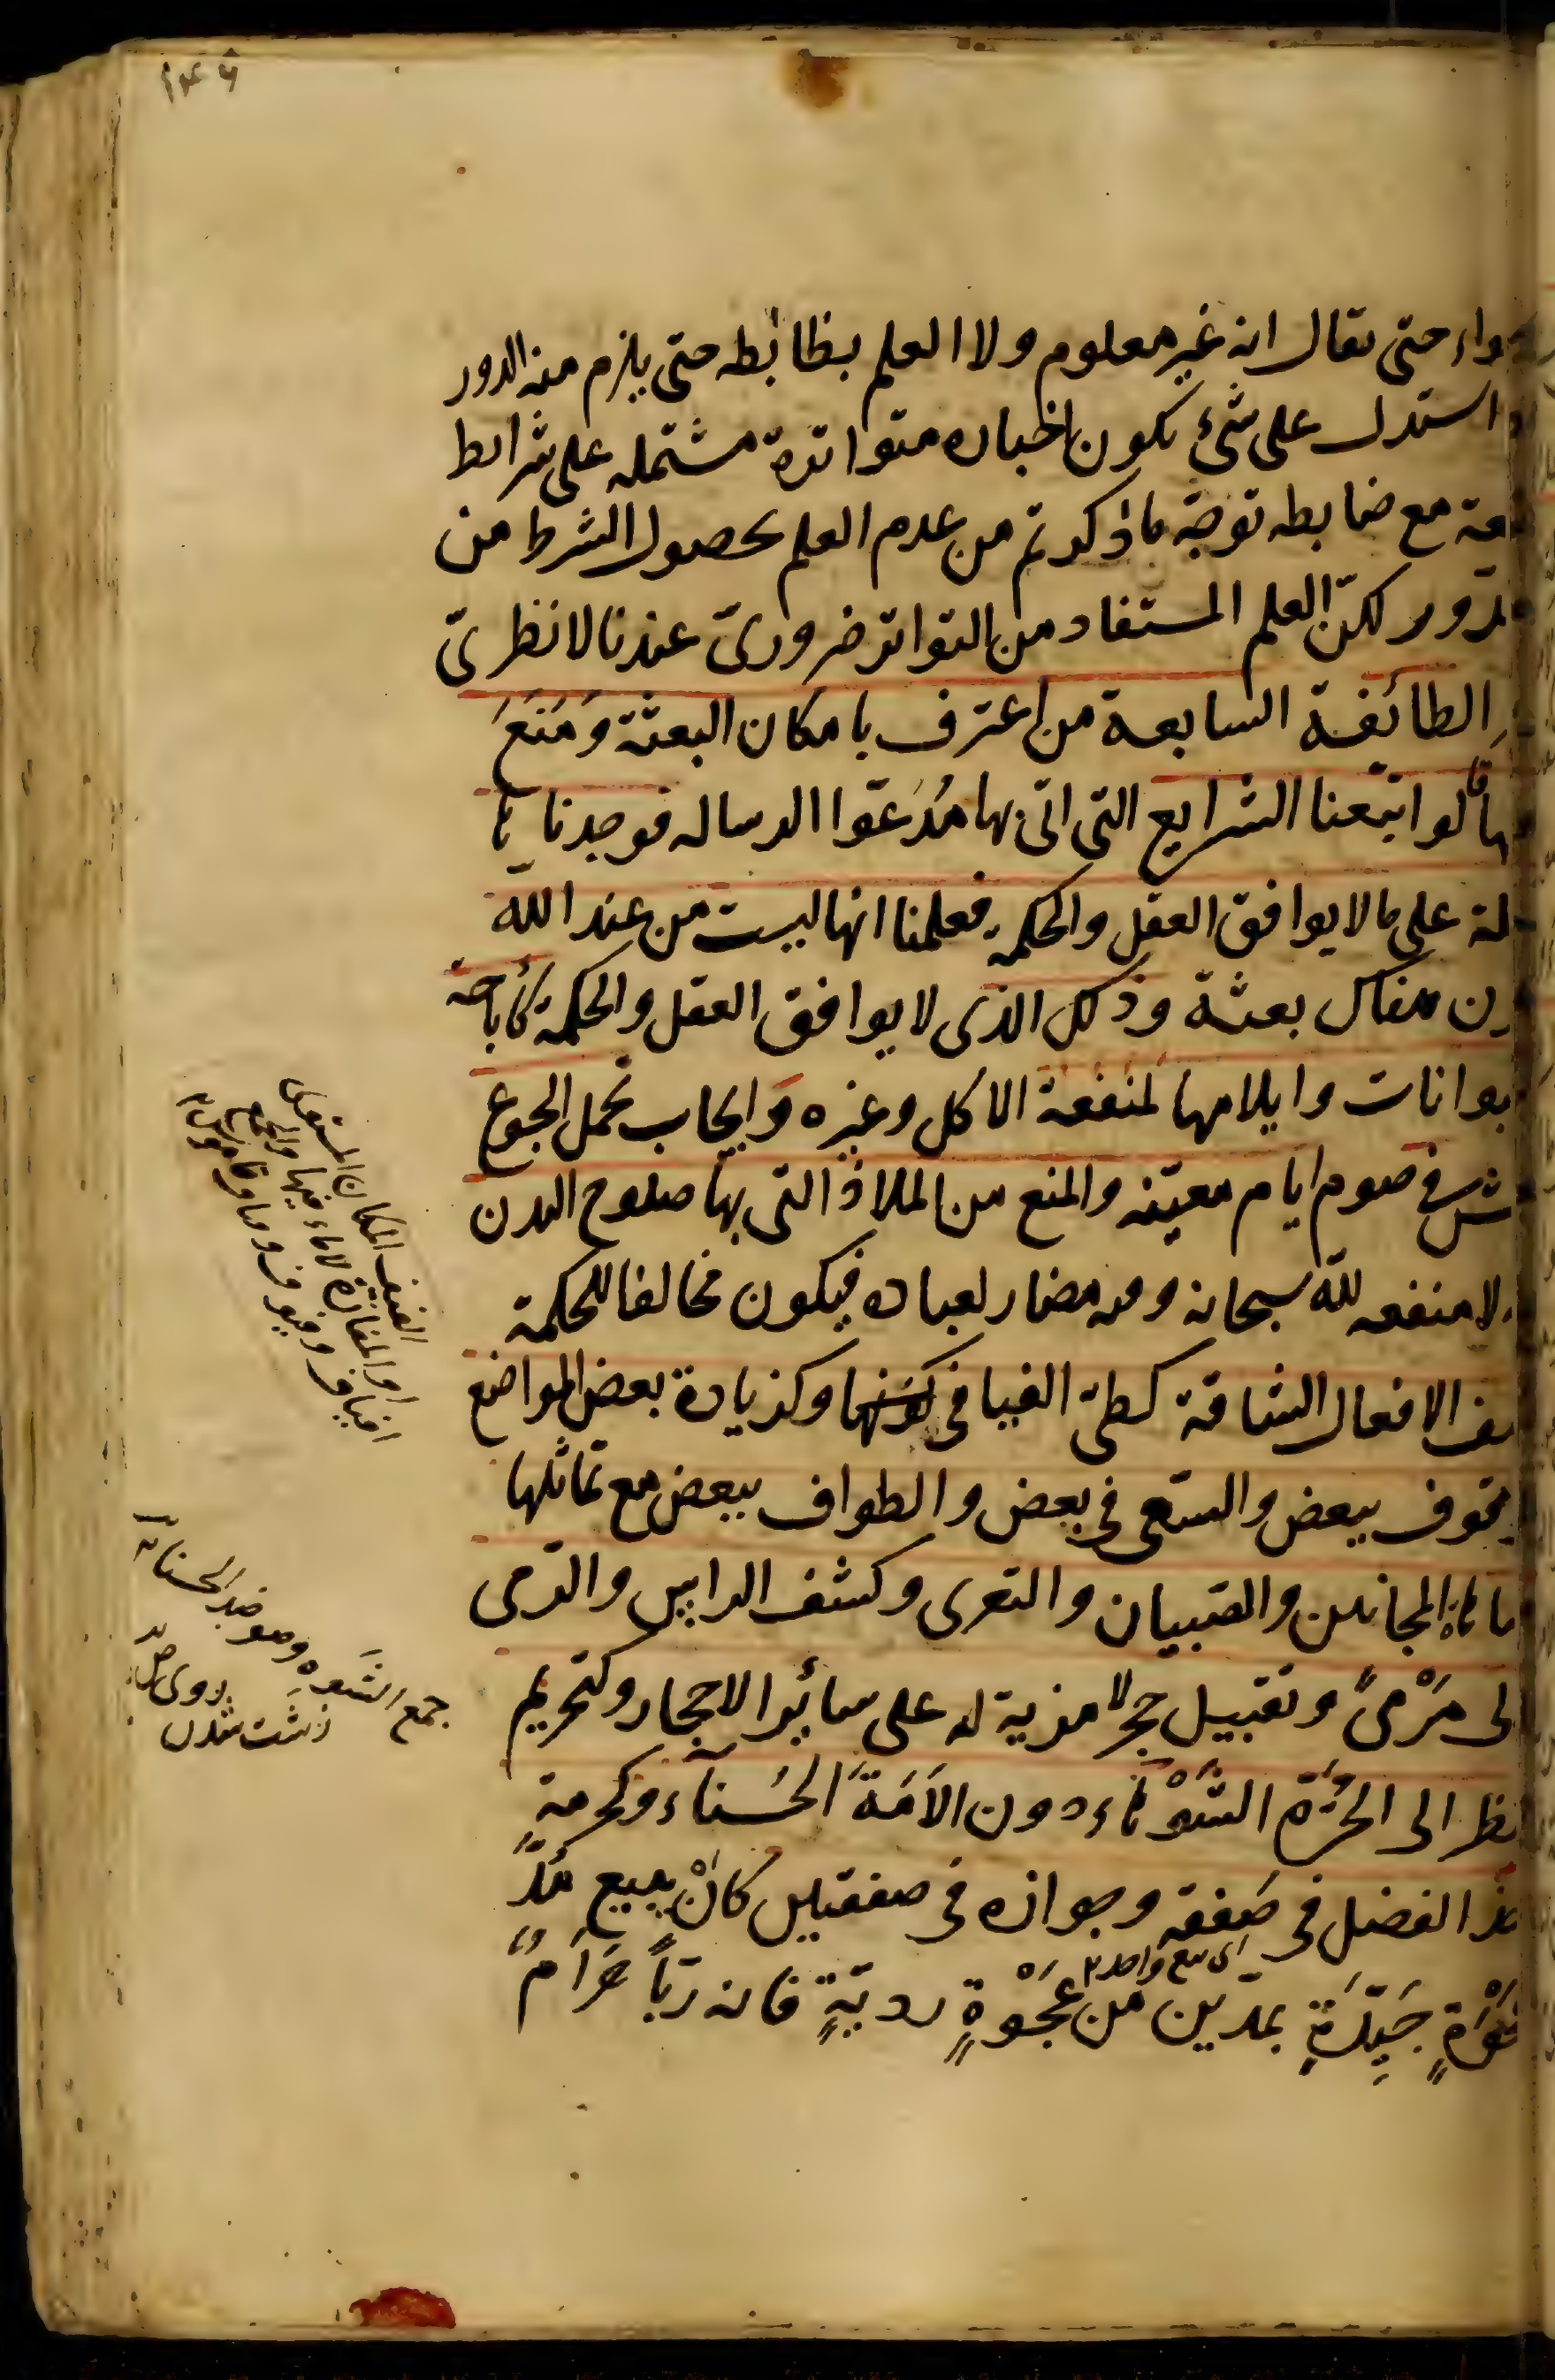 ١٤٦
حتى يقال انه غير معلوم ولا العلم بظابطه حتى يلزم منه الدور
استدل على شئ بكون اخباره متواترة مشتمله على شرايط
مع ضابطه توجّه ما ذكرتم من عدم العلم بحصول الشرط من
لكنّ العلم المستفاد من التواتر ضروريّ عندنا لا نظريّ
الطائفة السابعة من اعترف بامكان البعثة وَمَنَعَ
قالوا تتبّعنا الشرايع التى اتى بها مُدّعوا الرساله فوجدنا
على ما لا يوافق العقل والحكمة فعلمنا انها ليست من عند الله
بعثة وذلك الذى لا يوافق العقل والحكمة كأباحة
وايلامها لمنفعة الاكل وغيره وايجاب تحمل الجوع
فى صوم ايام معيّنه والمنع من الملاذّ التى بها صلوح البدن
لا منفعه لله سبحانه ومضار لعباده فيكون مخالفا للحكمة
الافعال الشاقة كطىّ الفيافى وكزيادة بعض المواضع
ببعض والسّعى فى بعض والطواف ببعض مع تماثلها
المجانين والصّبيان والتعرى وكشف الراس والرّمى
مَرْمىً وتقبيل حجر لا مزية له على سائر الاحجار وكتحريم
الى الحُرّة الشَوْهاء دون الاَمَةَ الحَسناء وكحرمةِ
الفضل فى صَفقه وجوازه فى صفقتين كانْ يبيع مُدّ
اى بيع واحد
جَيِّدَةٍ بمدّين من عَجْوَةٍ رديّةٍ فانه رباً حَرَام
المكان المستوى
او المفازة لا ماء فيها
جمع الشوه وهو ضد الحسنا
زشت شدن روى